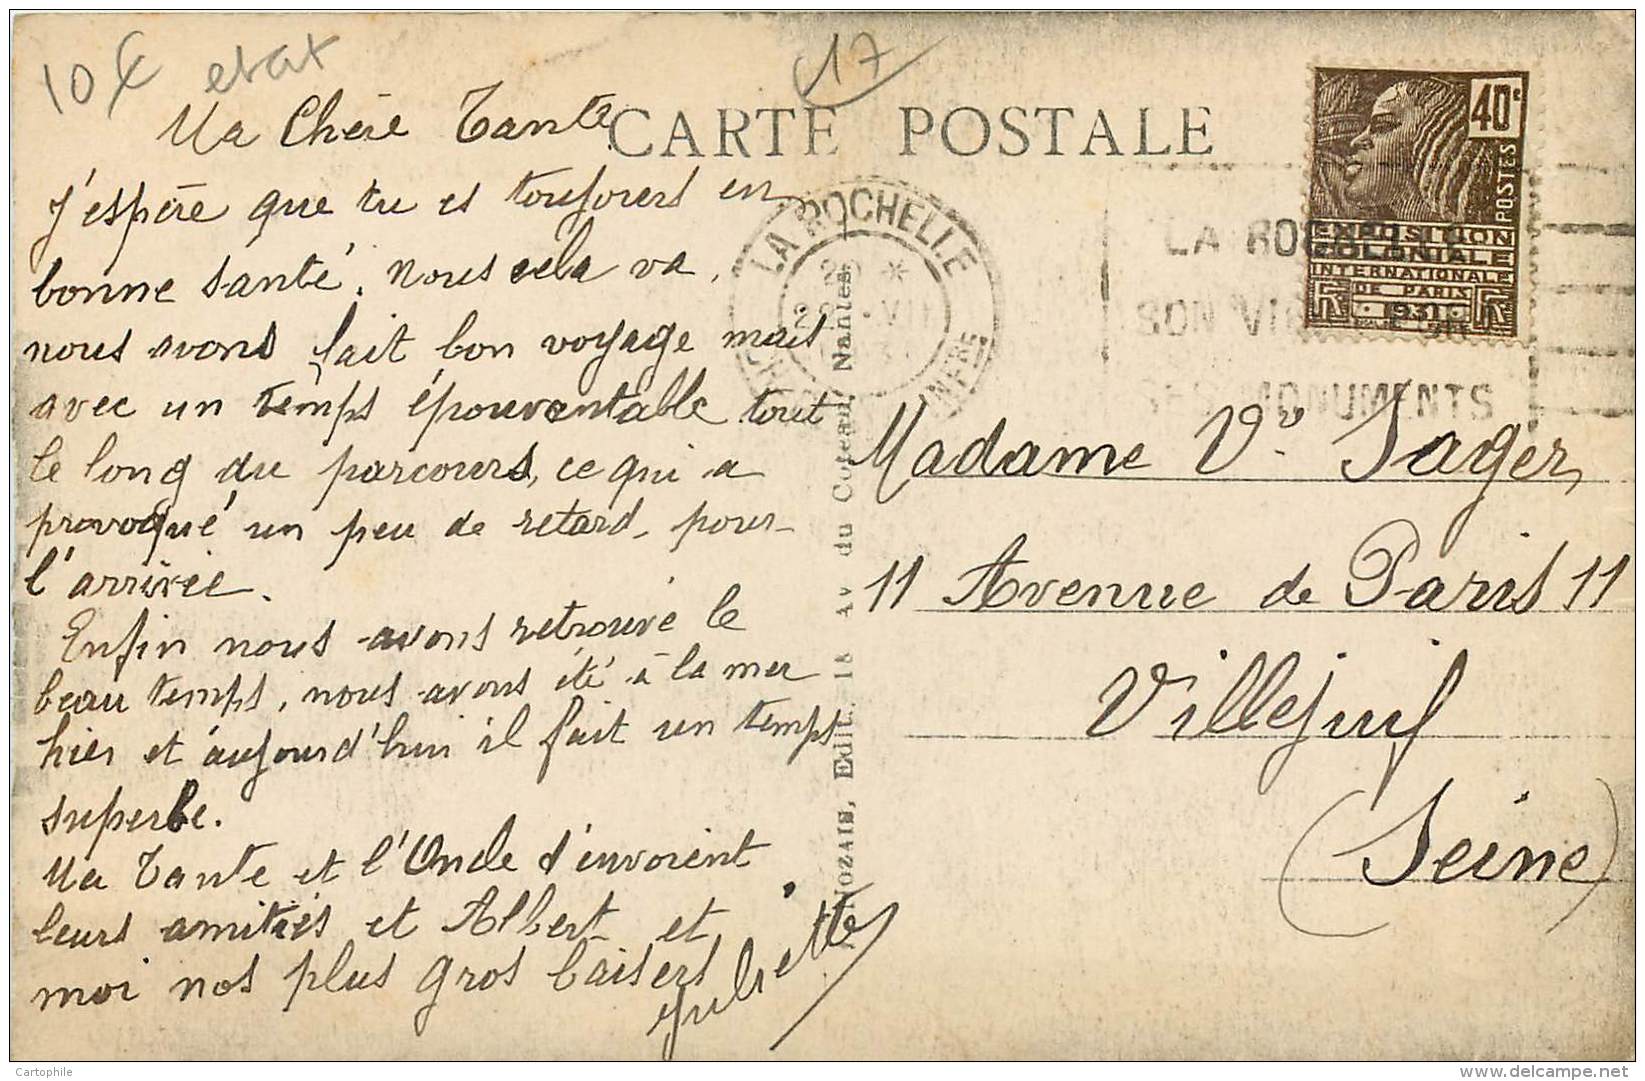 10 € etat
17
CARTE POSTALE
Ma Chère Tante
J'espère que tu es toujours en
bonne santé. Nous cela va,
nous avons fait bon voyage mais
avec un temps épouventable tout
le long du parcours, ce qui a
provoqué un peu de retard pour
l'arrivée.
Enfin nous avons retrouvé le
beau temps, nous avons été à la mer
hier et aujourd'hui il fait un temps
superbe.
Ma Tante et l'Oncle t'envoient
leurs amitiés et Albert et
moi nos plus gros baisers
Juliette
Nozais, Edit. 18 Av du Coteau, Nantes
LA ROCHELLE
40c
POSTES
EXPOSITION
COLONIALE
INTERNATIONALE
DE PARIS
1931
LA ROCHELLE
SON VIEUX PORT
SES MONUMENTS
Madame Ve Jager,
11 Avenue de Paris 11
Villejuif
(Seine)
Cartophile
www.delcampe.net